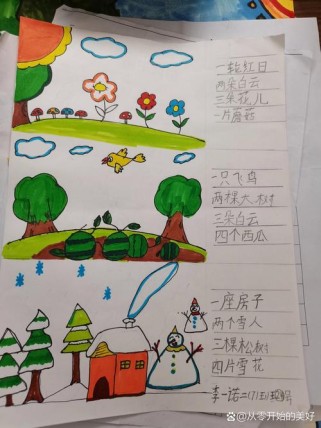 一轮红日
两朵白云
三朵花儿
一片蘑菇
一只飞鸟
两棵大树
三朵白云
四个西瓜
一座房子
两个雪人
三棵松树
四片雪花
李一诺
@从零开始的美好